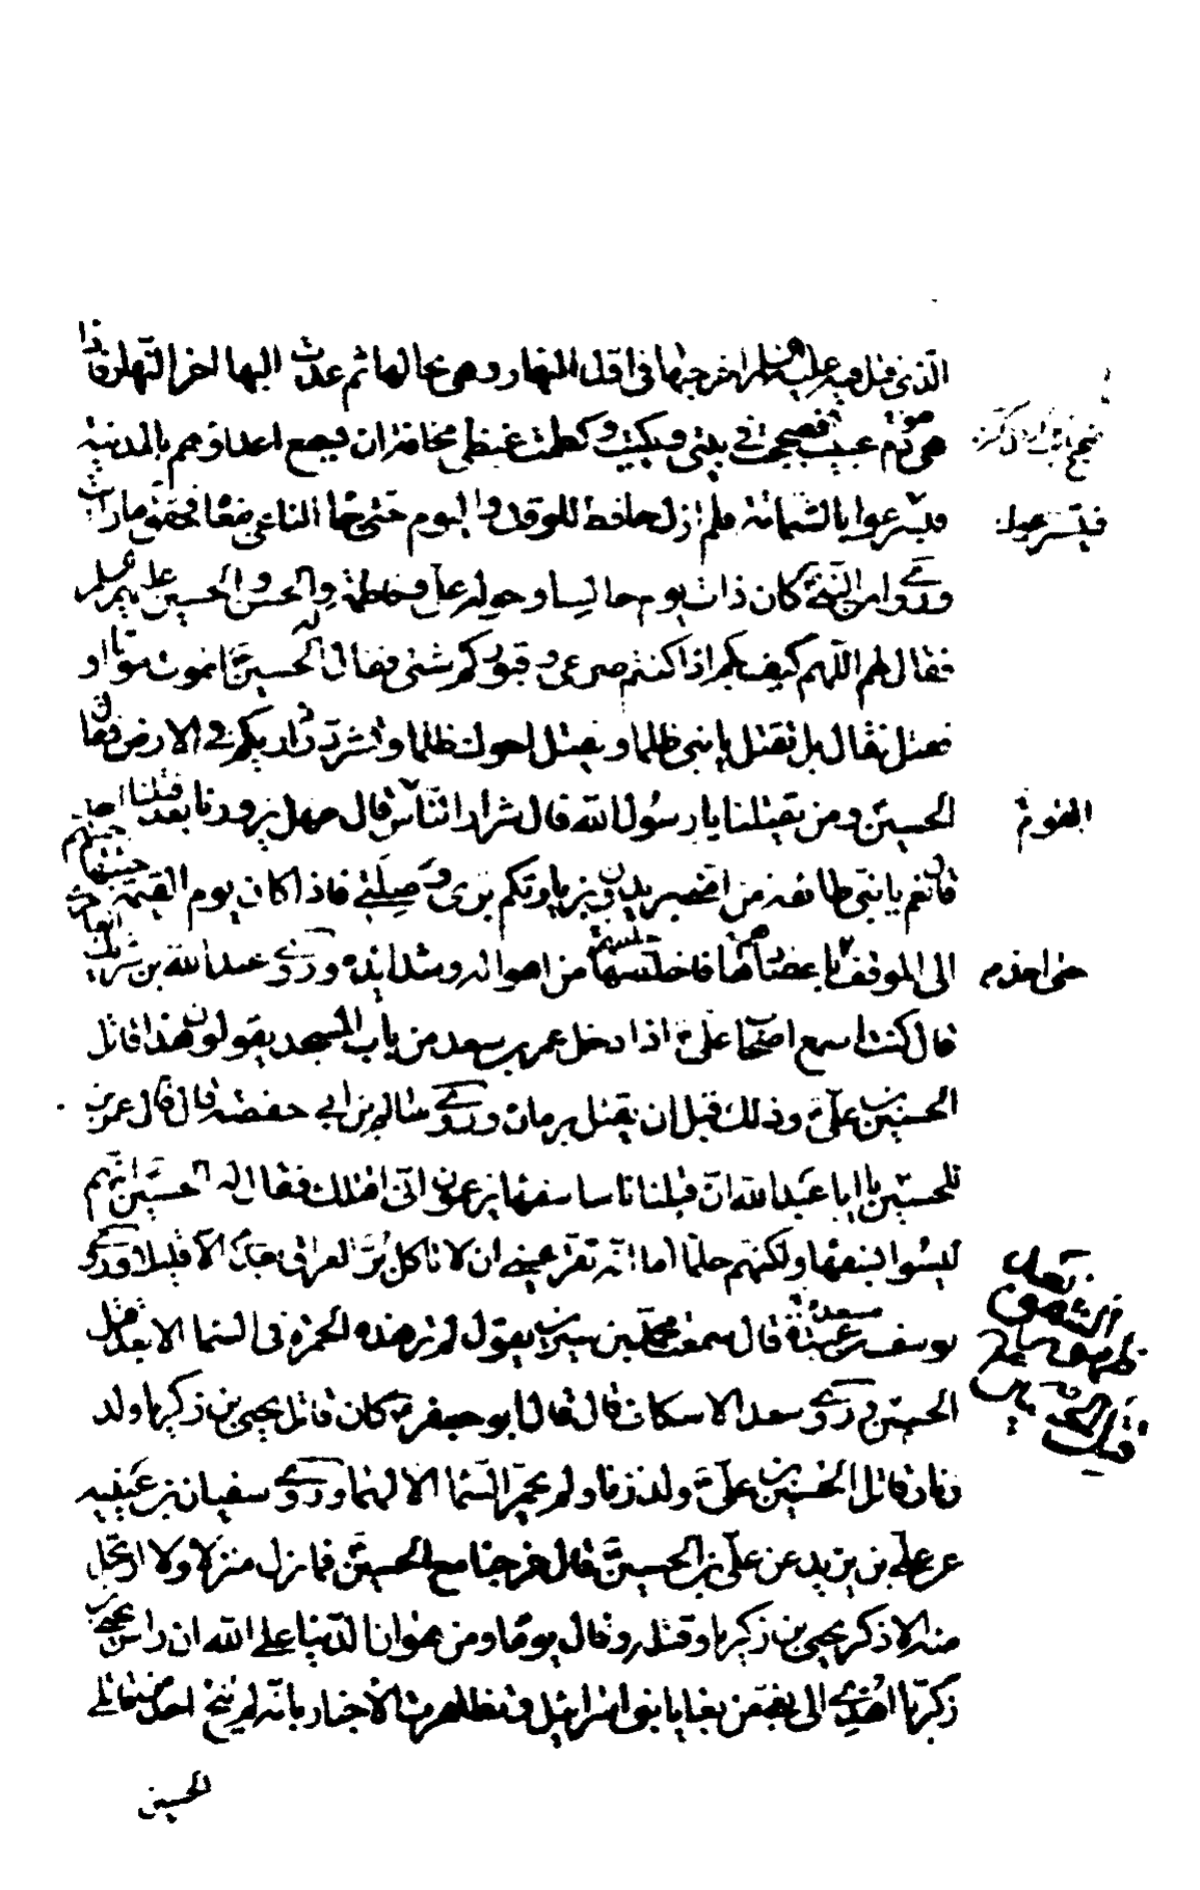 الذي قتل فيه عليه السلم اخرجتها في اول النهار وهي بحالها ثم عدت اليها اخر النهار فاذا
هي دم عبيط فصحت في بيتي وبكيت وكظمت غيظي مخافة ان يسمع اعداؤهم بالمدينة
فيسرعوا بالشماتة فلم ازل حافظة للوقت واليوم حتى جاء الناعي ينعاه فحقق ما رايت
وروى ان النبي كان ذات يوم جالسا وحوله علي وفاطمة والحسن والحسين عليهم السلم
فقال لهم كيف بكم اذا كنتم صرعى وقبوركم شتى فقال له الحسين انموت موتا او
نقتل فقال بل تقتل يا بني ظلما ويقتل اخوك ظلما وتشرد ذراريكم في الارض فقال
الحسين ومن يقتلنا يا رسول الله قال شرار الناس قال فهل يزورنا بعد قتلنا احد
قال نعم يا بني طائفة من امتي يريدون بزيارتكم بري وصلتي فاذا كان يوم القيمة جئتهم
الى الموقف حتى اخذ باعضادها فاخلصها من اهواله وشدائده وروى عبد الله بن شريك
قال كنت اسمع اصحاب علي اذا دخل عمر بن سعد من باب المسجد يقولون هذا قاتل
الحسين بن علي وذلك قبل ان يقتل بزمان وروى سالم بن ابي حفصة قال قال عمر بن
للحسين يا ابا عبد الله ان قبلنا ناسا سفهاء يزعمون اني اقتلك فقال له الحسين انهم
ليسوا بسفهاء ولكنهم حلماء اما انه تقر عيني ان لا تاكل بر العراق بعدي الا قليلا وروى
يوسف بن عبيدة قال سمعت محمد بن سيرين يقول لم تر هذه الحمرة في السماء الا بعد قتل
الحسين وروى سعد الاسكاف قال قال ابو جعفر كان قاتل يحيى بن زكريا ولد
زنا وقاتل الحسين بن علي ولد زنا ولم تحمر السماء الا لهما وروى سفيان بن عيينة
عن علي بن يزيد عن علي بن الحسين قال خرجنا مع الحسين فما نزل منزلا ولا ارتحل
منه الا ذكر يحيى بن زكريا وقتله وقال يوما ومن هوان الدنيا على الله ان راس يحيى بن
زكريا اهدي الى بغي من بغايا بني اسرائيل وتظاهرت الاخبار بانه لم ينج احد من قاتلي
الحسين